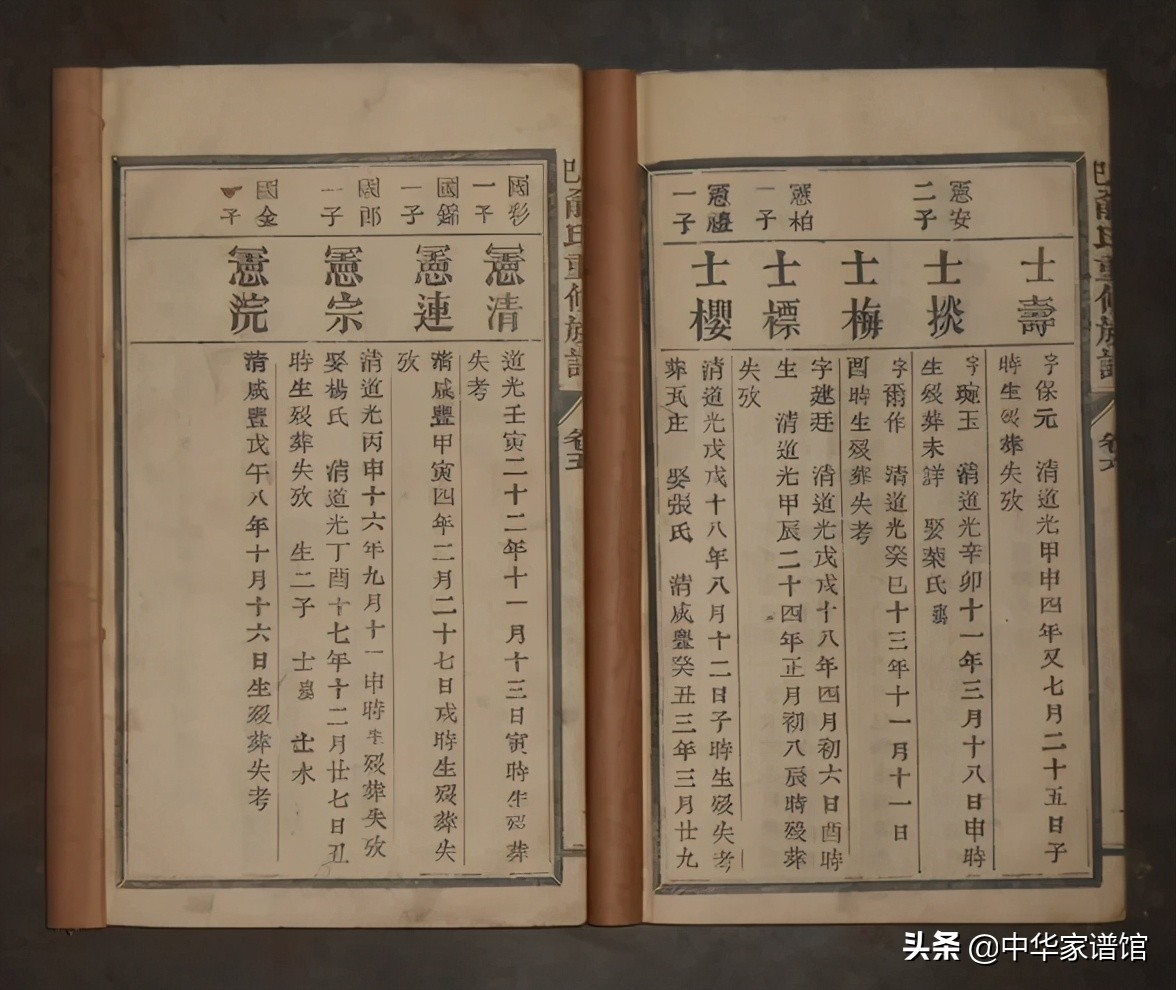 士壽
字保元 清道光甲申四年又七月二十五日子
時生歿葬失攷
憲安
二子
士掞
字琬玉 清道光辛卯十一年三月十八日申時
生歿葬未詳 娶葉氏
士梅
字爾作 清道光癸巳十三年十一月十一日
酉時生歿葬失考
憲柏
一子
士標
字建廷 清道光戊戌十八年四月初六日酉時
生 清道光甲辰二十四年正月初八辰時歿葬
失攷
憲禮
一子
士櫻
清道光戊戌十八年八月十二日子時生歿失考
葬瓦庄 娶張氏 清咸豐癸丑三年三月廿九
氏重修族譜 卷六
國彩
一子
憲清
道光壬寅二十二年十一月十三日寅時生歿葬
失考
國錦
一子
憲連
清咸豐甲寅四年二月二十七日戌時生歿葬失
攷
國郎
一子
憲宗
清道光丙申十六年九月十一申時生歿葬失攷
娶楊氏 清道光丁酉十七年十二月廿七日丑
時生歿葬失攷 生二子 士 士水
國金
子
憲浣
清咸豐戊午八年十月十六日生歿葬失考
氏重修族譜 卷五
头条 @中华家谱馆